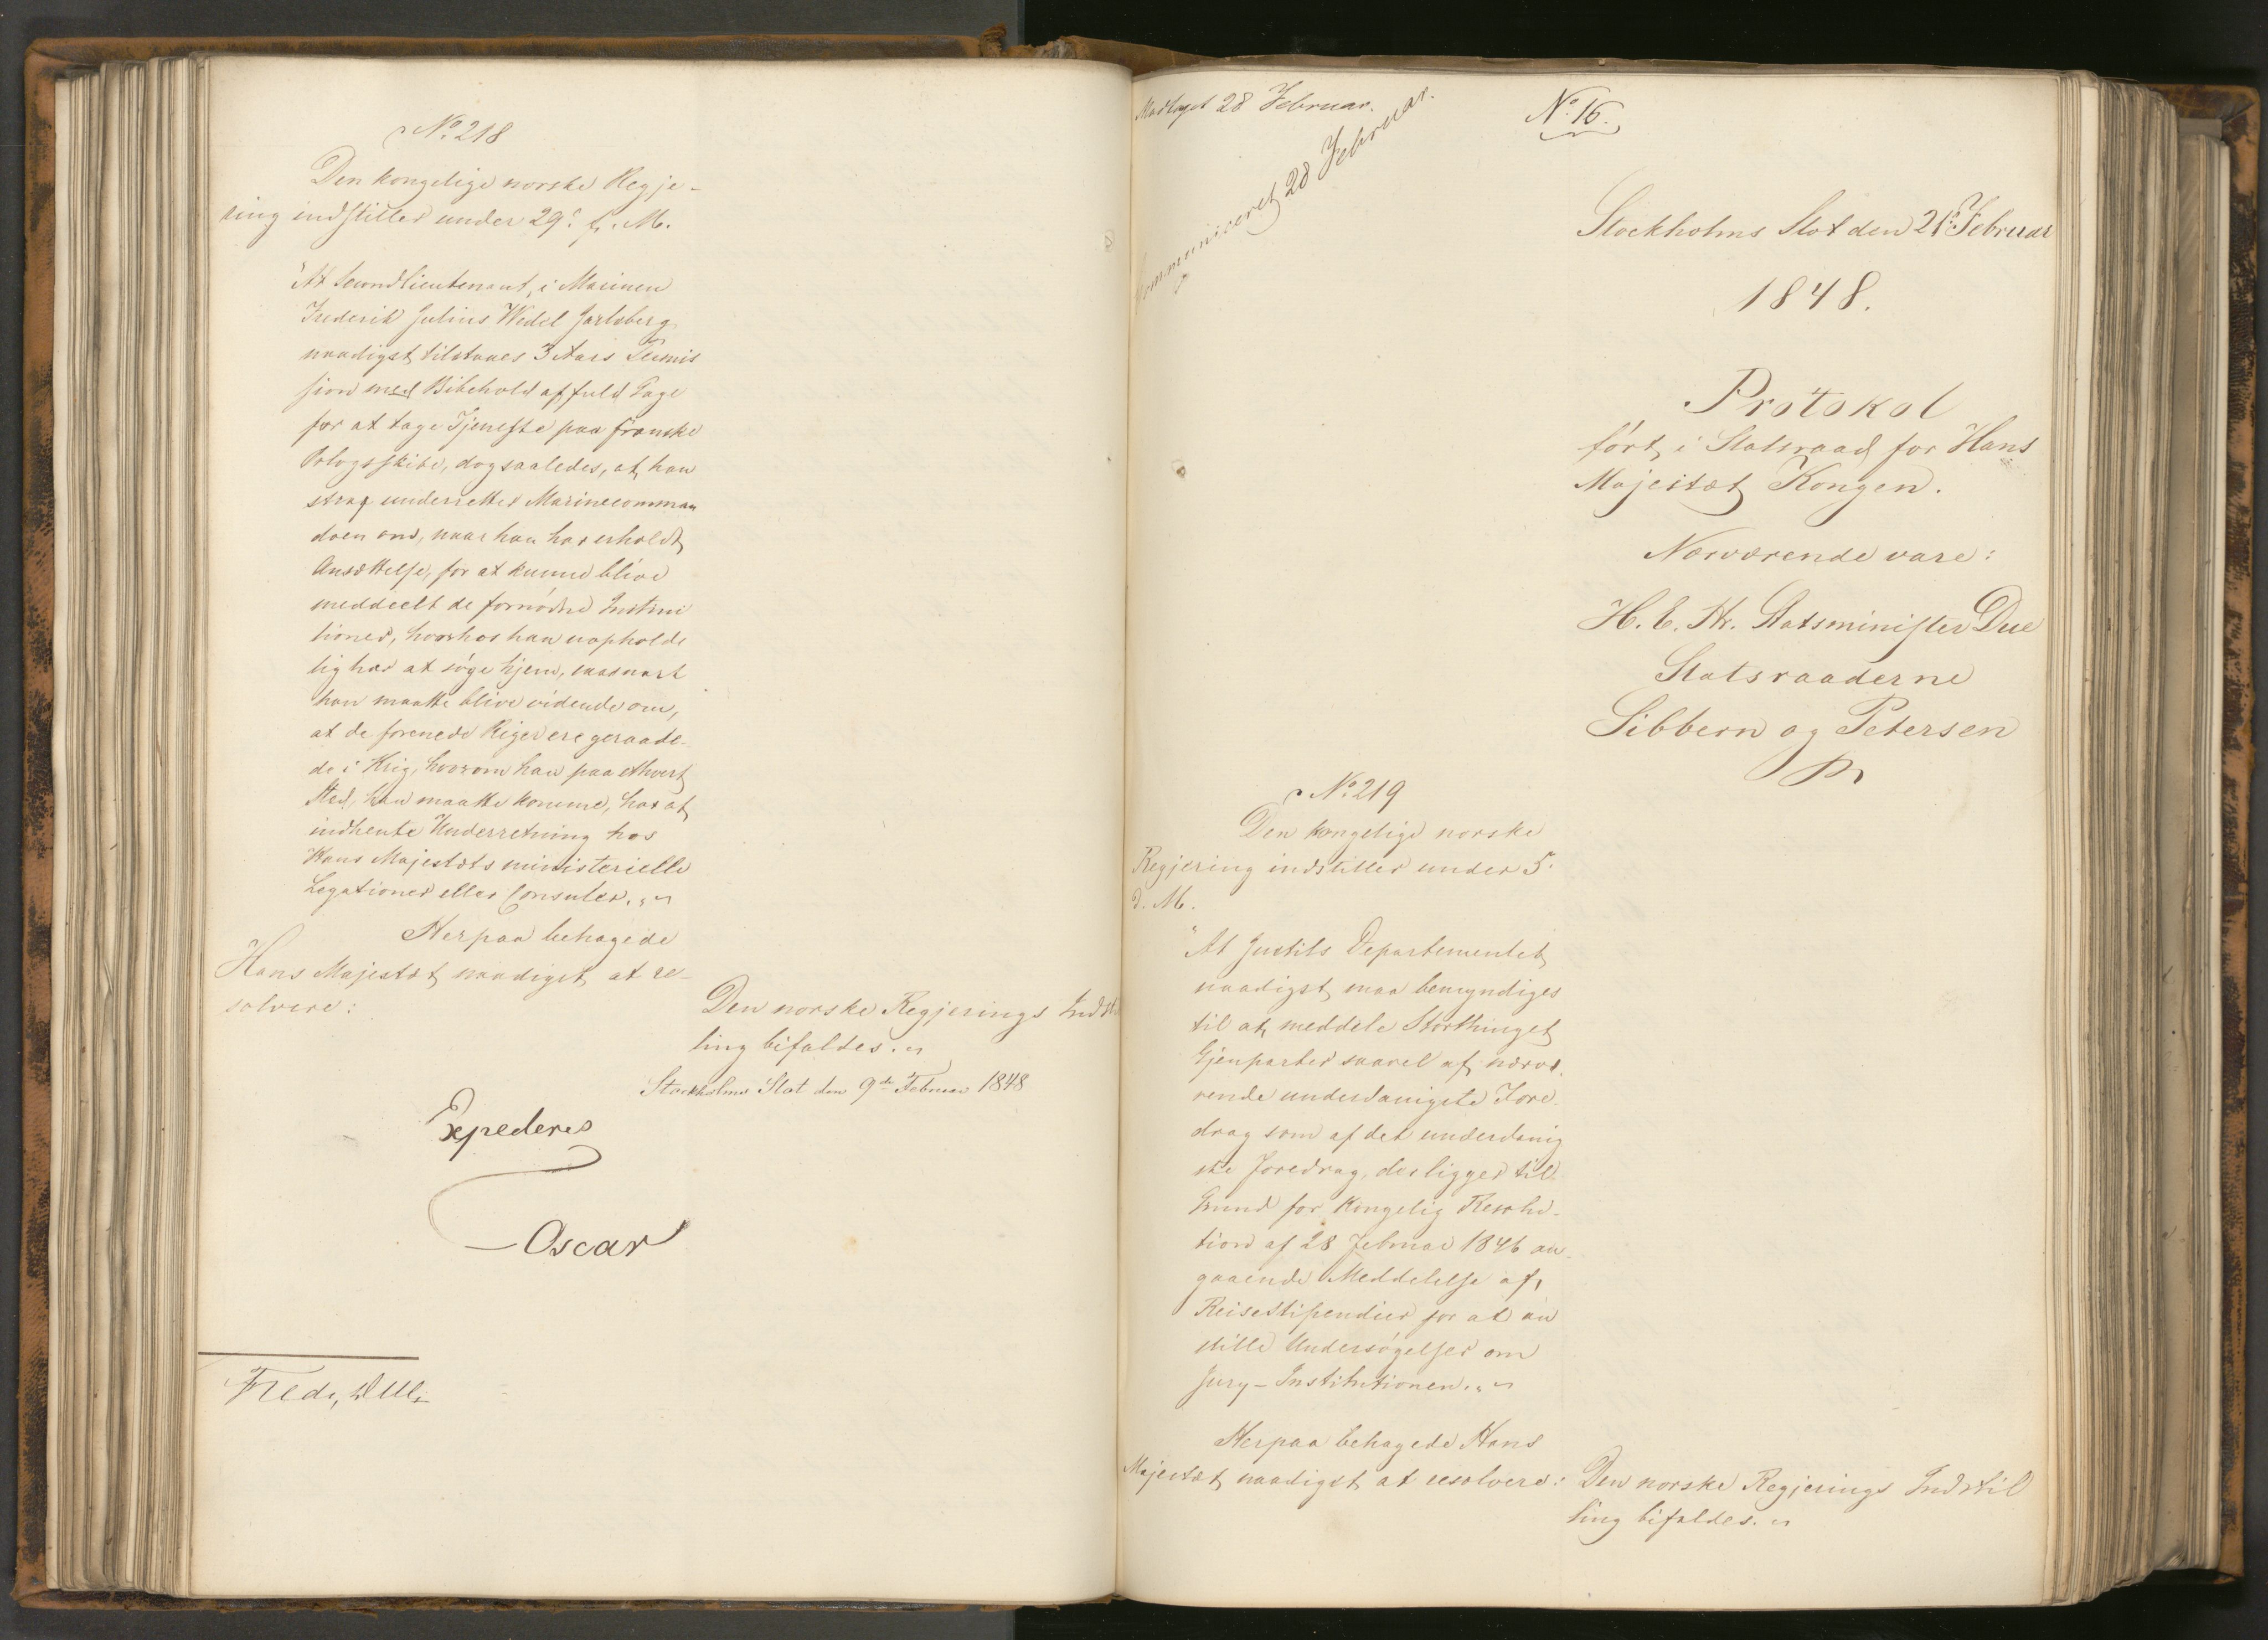 No. 218
Den kongelige norske Regje-
ring indstiller under 29de f. M.
"At Secondlieutenant i Marinen
Frederik Julius Wedel Jarlsberg
naadigst tilstaaes 3 Aars Permis
sion med Bibehold af fuld Gage
for at tage Tjeneste paa franske
Orlogsskibe, dog saaledes, at han
strax underretter Marinecomman
doen om, naar han har erholdt
Ansættelse, for at kunne blive
meddeelt de fornødne Instruc
tioner, hvorhos han uopholde
lig har at søge hjem, saasnart
han maatte blive vidende om,
at de forenede Riger ere geraade-
de i Krig, hvorom han paa ethvert
Sted, han maatte komme, har at
indhente Underretning hos
Hans Majestæts ministerielle
Legationer eller Consuler."
Herpaa behagede
Hans Majestæt naadigst at re-
solvere:
Den norske Regjerings Indstil
ling bifaldes.
Stockholms Slot den 9de Februar 1848
Expederes
Oscar
Fredr. Due
Modtaget 28 Februar.
Communiceret 28 Februar.
No. 16.
Stockholms Slot den 21de Februar
1848.
Protokol
ført i Statsraad for Hans
Majestæt Kongen.
Nærværende vare:
H. E. Hr. Statsminister Due
Statsraaderne
Sibbern og Petersen
No. 219
Den kongelige norske
Regjering indstiller under 5.
d. M.
"At Justits Departementet
naadigst maa bemyndiges
til at meddele Storthinget
Gjenparter saavel af nærvæ-
rende underdanigste Fore-
drag som af det underdanig
ste Foredrag, der ligger til
Grund for Kongelig Resolu-
tion af 28 Februar 1846 an-
gaaende Meddelelse af
Reisestipendier for at an
stille Undersøgelser om
Jury-Institutionen."
Herpaa behagede Hans
Majestæt naadigst at resolvere:
Den norske Regjerings Indstil
ling bifaldes.